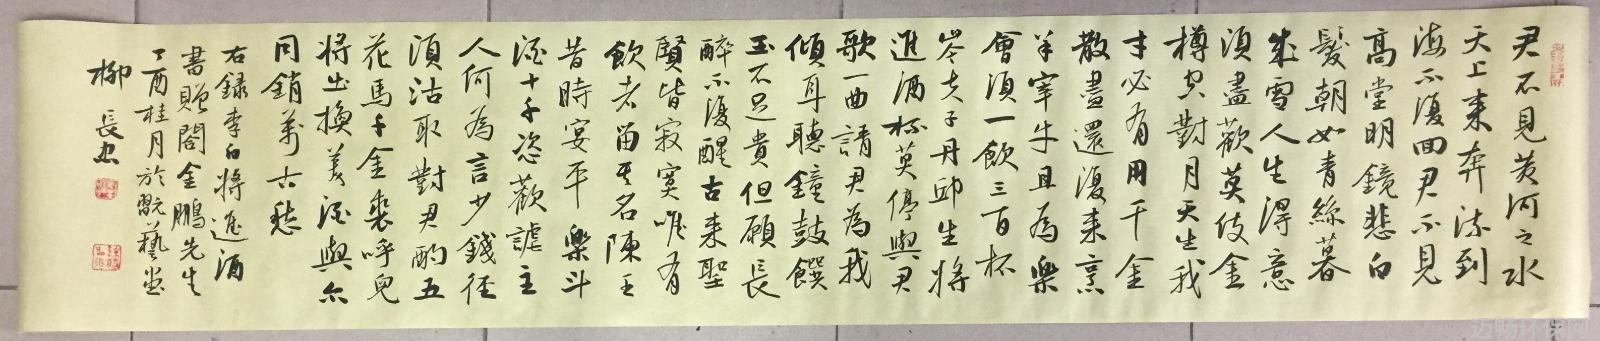 君不見黃河之水
天上來奔流到
海不復回君不見
高堂明鏡悲白
髮朝如青絲暮
成雪人生得意
須盡歡莫使金
樽空對月天生我
才必有用千金
散盡還復來烹
羊宰牛且為樂
會須一飲三百杯
岑夫子丹邱生將
進酒杯莫停與君
歌一曲請君為我
傾耳聽鐘鼓饌
玉不足貴但願長
醉不復醒古來聖
賢皆寂寞唯有
飲者留其名陳王
昔時宴平樂斗
酒十千恣歡謔主
人何為言少錢徑
須沽取對君酌五
花馬千金裘呼兒
將出換美酒與爾
同銷萬古愁
右錄李白將進酒
書贈閻金鵬先生
丁酉桂月於翫藝堂
柳長忠
迈畅环保网